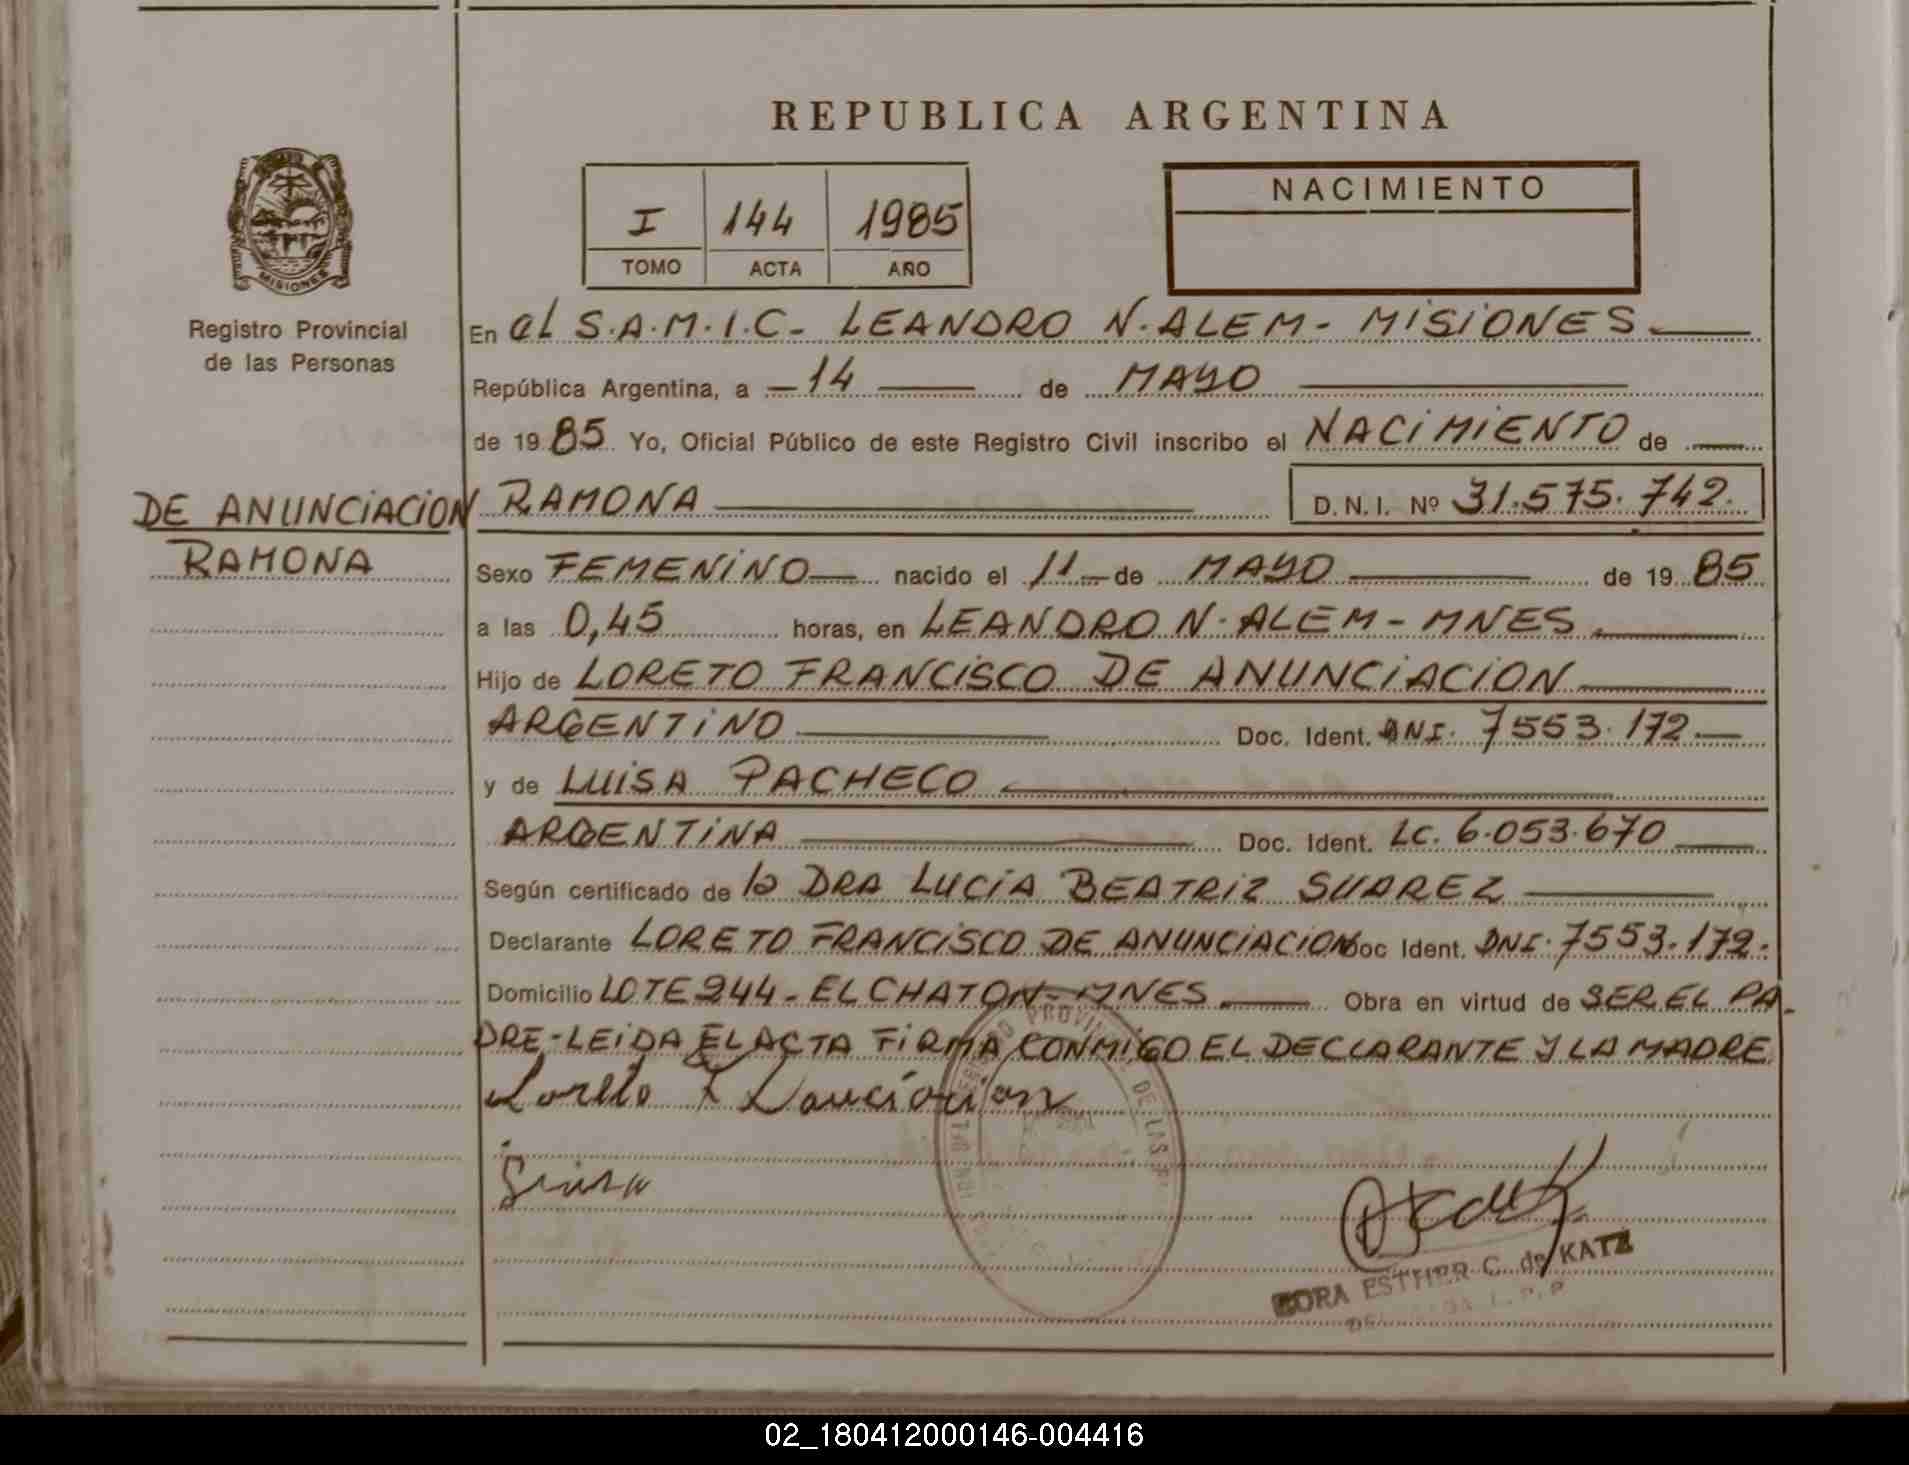 REPUBLICA ARGENTINA
MISIONES
Registro Provincial
de las Personas
I 144 1985
TOMO ACTA AÑO
NACIMIENTO
En el S.A.M.I.C- LEANDRO N. ALEM- MISIONES
República Argentina, a 14 de MAYO
de 19 85 Yo, Oficial Público de este Registro Civil inscribo el NACIMIENTO de
DE ANUNCIACION
RAMONA
RAMONA D.N.I. Nº 31.575.742.
Sexo FEMENINO nacido el 11 de MAYO de 19 85
a las 0,45 horas, en LEANDRO N. ALEM - MNES
Hijo de LORETO FRANCISCO DE ANUNCIACION
ARGENTINO Doc. Ident. DNI. 7553.172
y de LUISA PACHECO
ARGENTINA Doc. Ident. LC. 6.053.670
Según certificado de la DRA LUCIA BEATRIZ SUAREZ
Declarante LORETO FRANCISCO DE ANUNCIACION Doc Ident. DNI. 7553.172.
Domicilio LOTE 244 - EL CHATON - MNES Obra en virtud de SER EL PA-
DRE - LEIDA EL ACTA FIRMA CONMIGO EL DECLARANTE Y LA MADRE
Loreto F
REGISTRO PROVINCIAL DE LAS
ESTHER C. de KATZ
02_180412000146-004416